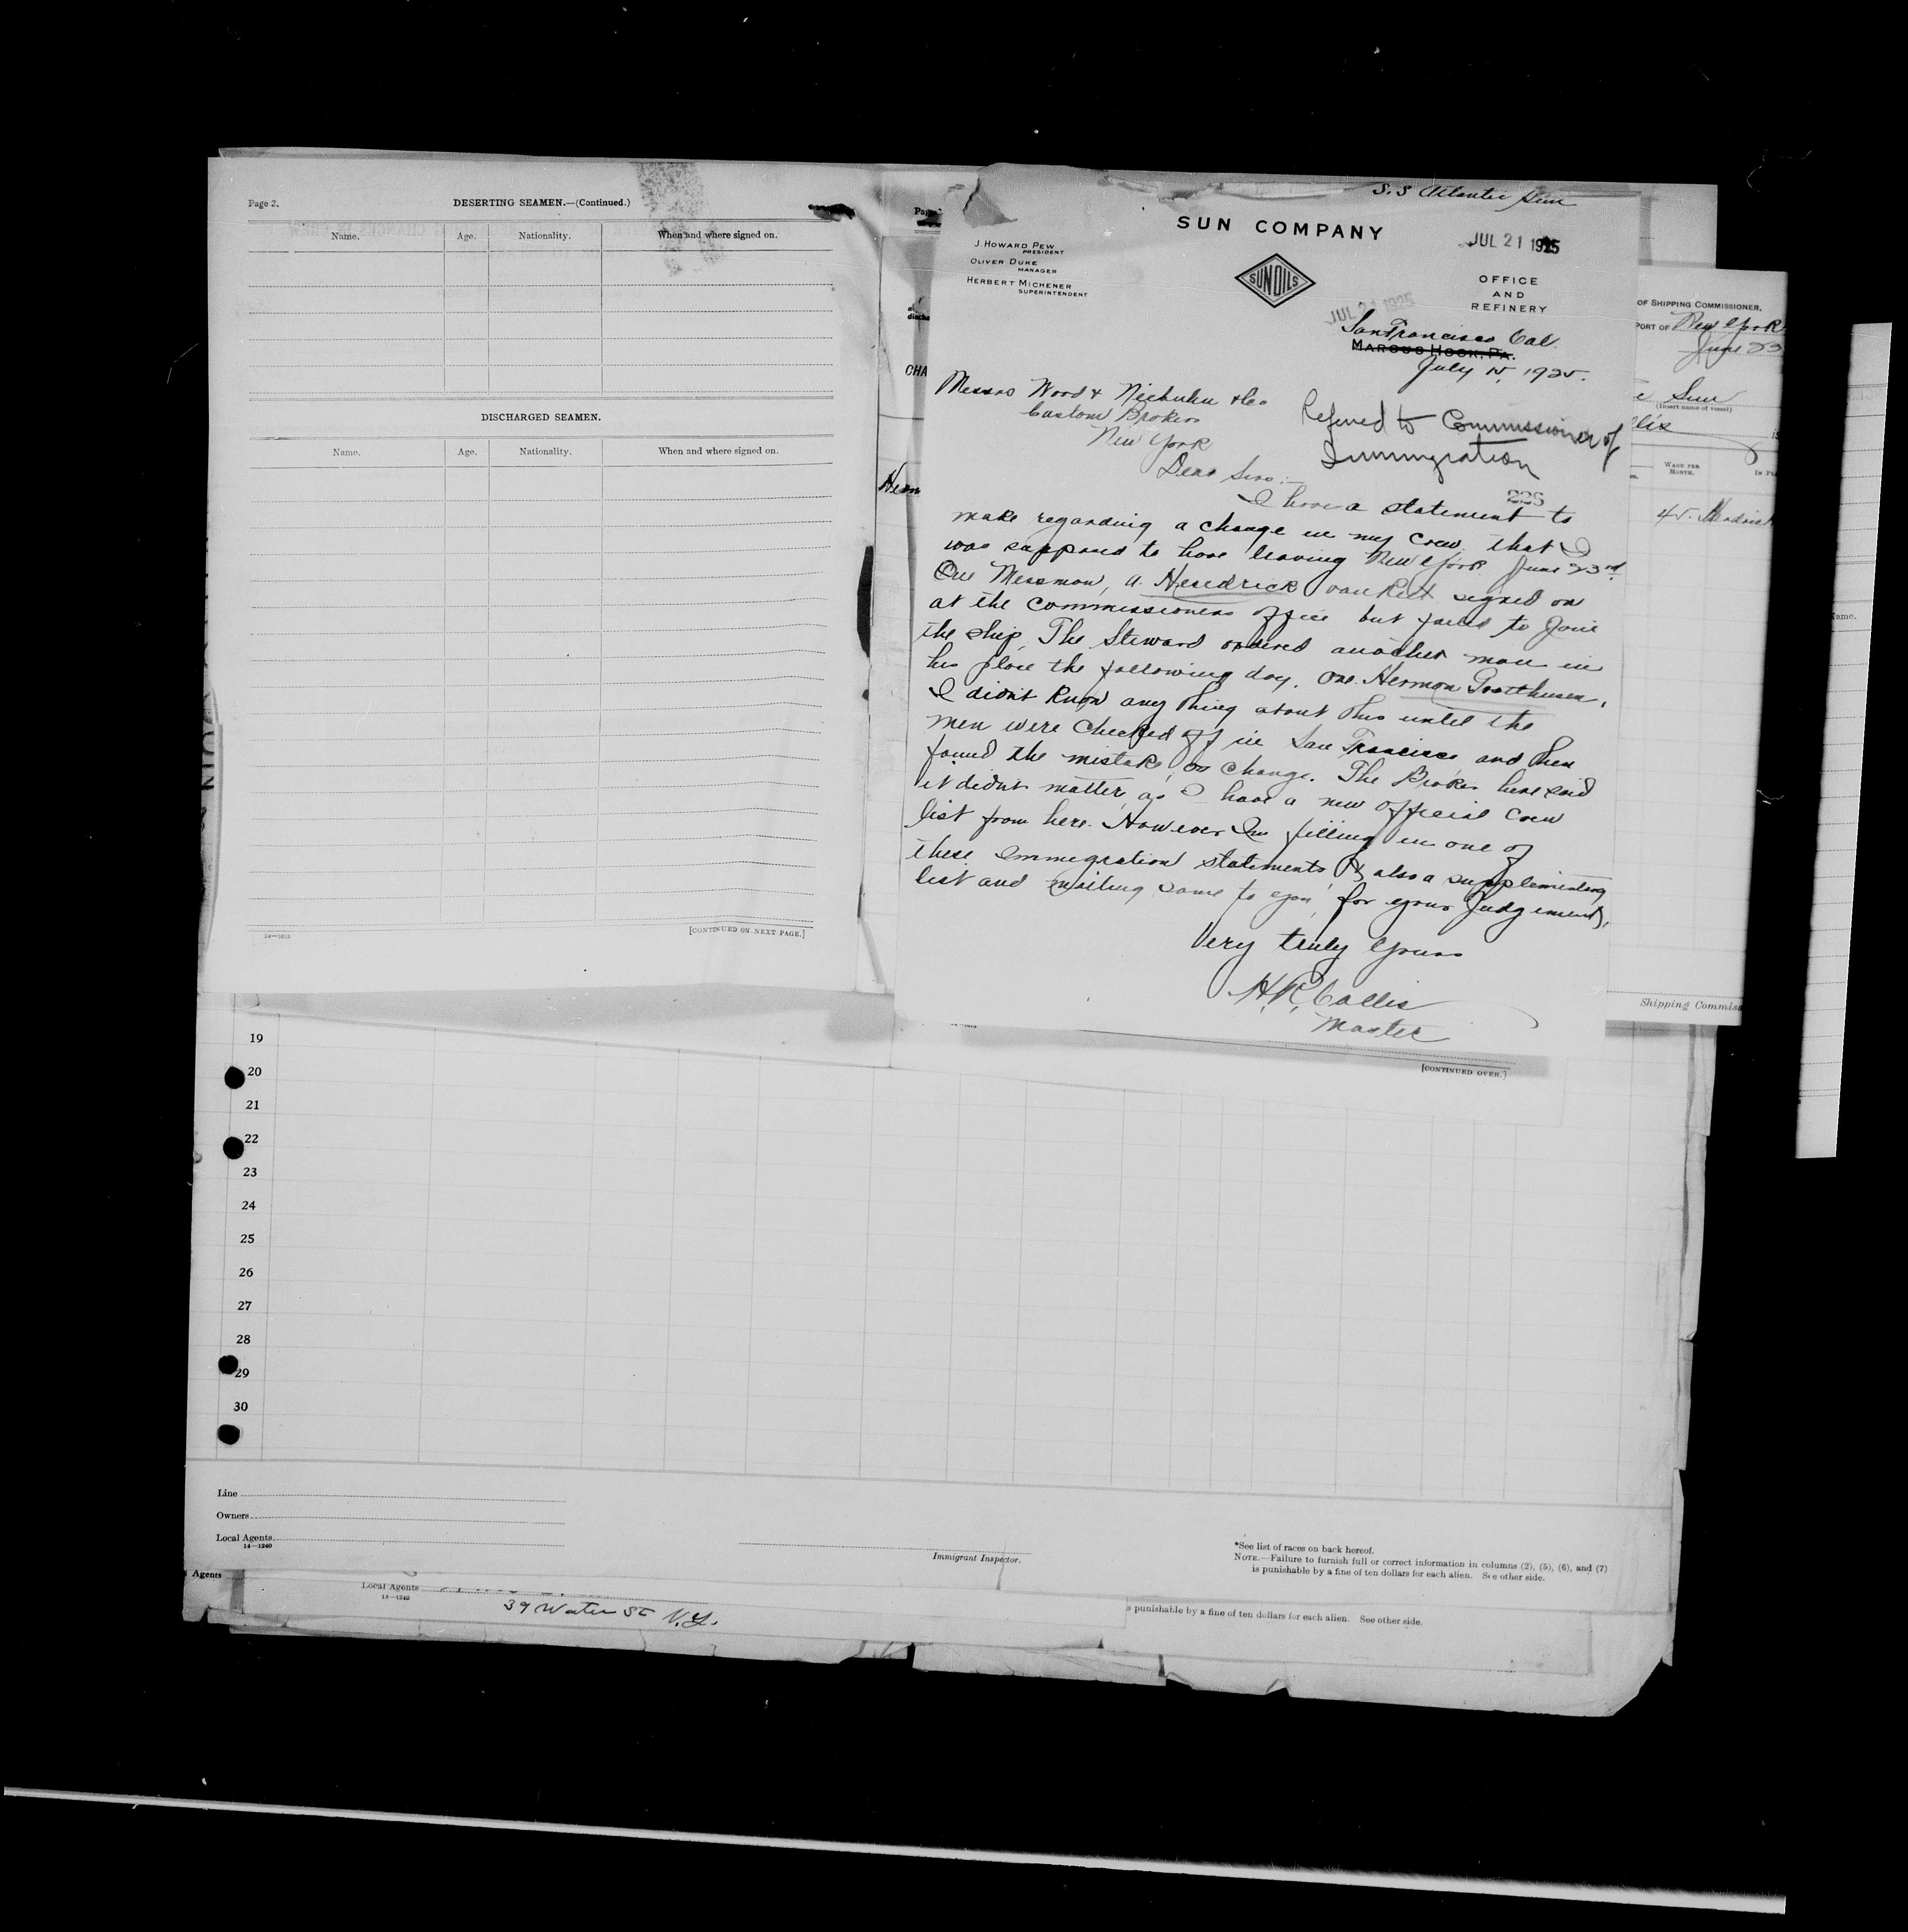 Page 2.
DESERTING SEAMEN.—(Continued.)
Name. Age. Nationality. When and where signed on.
DISCHARGED SEAMEN.
Name. Age. Nationality. When and where signed on.
[CONTINUED ON NEXT PAGE.]
CHA
Herm
S.S Atlantic Sun
SUN COMPANY
JUL 21 1925
J. HOWARD PEW
PRESIDENT
OLIVER DUKE
MANAGER
HERBERT MICHENER
SUPERINTENDENT
SUN OILS
OFFICE
AND
REFINERY
JUL 21 1925
San Francisco Cal.
MARCUS HOOK, PA.
July 15, 1925.
Messrs Wood & Niebuhr & Co
Custom Brokers
New York
Refered to Commissioner of
Immigration
Dear Sirs:—
226
I have a statement to
make regarding a change in my crew that I
was supposed to have leaving New York June 23rd
One Messman, a. Hendrick signed on
at the commissioners office but failed to Join
the ship. The Steward ordered another man in
his place the following day. one Herman
I didn't know any thing about this until the
men were checked off in San Francisco and then
found the mistake, or change. The Broker here said
it didn't matter, as I have a new official crew
list from here. However Im filling in one of
these Immigration statements & also a supplementary
list and mailing same to you, for your Judgement.
Very truly yours
H. R. Collis
Master
[CONTINUED OVER.]
OF SHIPPING COMMISSIONER.
PORT OF New York
June 23
Sun
(Insert name of vessel)
llis
WAGE PER
MONTH.
45. Hendrick
Shipping Commiss
Name.
19
20
21
22
23
24
25
26
27
28
29
30
Line
Owners
Local Agents
14—1240
Immigrant Inspector.
*See list of races on back hereof.
NOTE.—Failure to furnish full or correct information in columns (2), (5), (6), and (7)
is punishable by a fine of ten dollars for each alien. See other side.
Agents
Local Agents
14—1240
39 Water St N.Y.
s punishable by a fine of ten dollars for each alien. See other side.